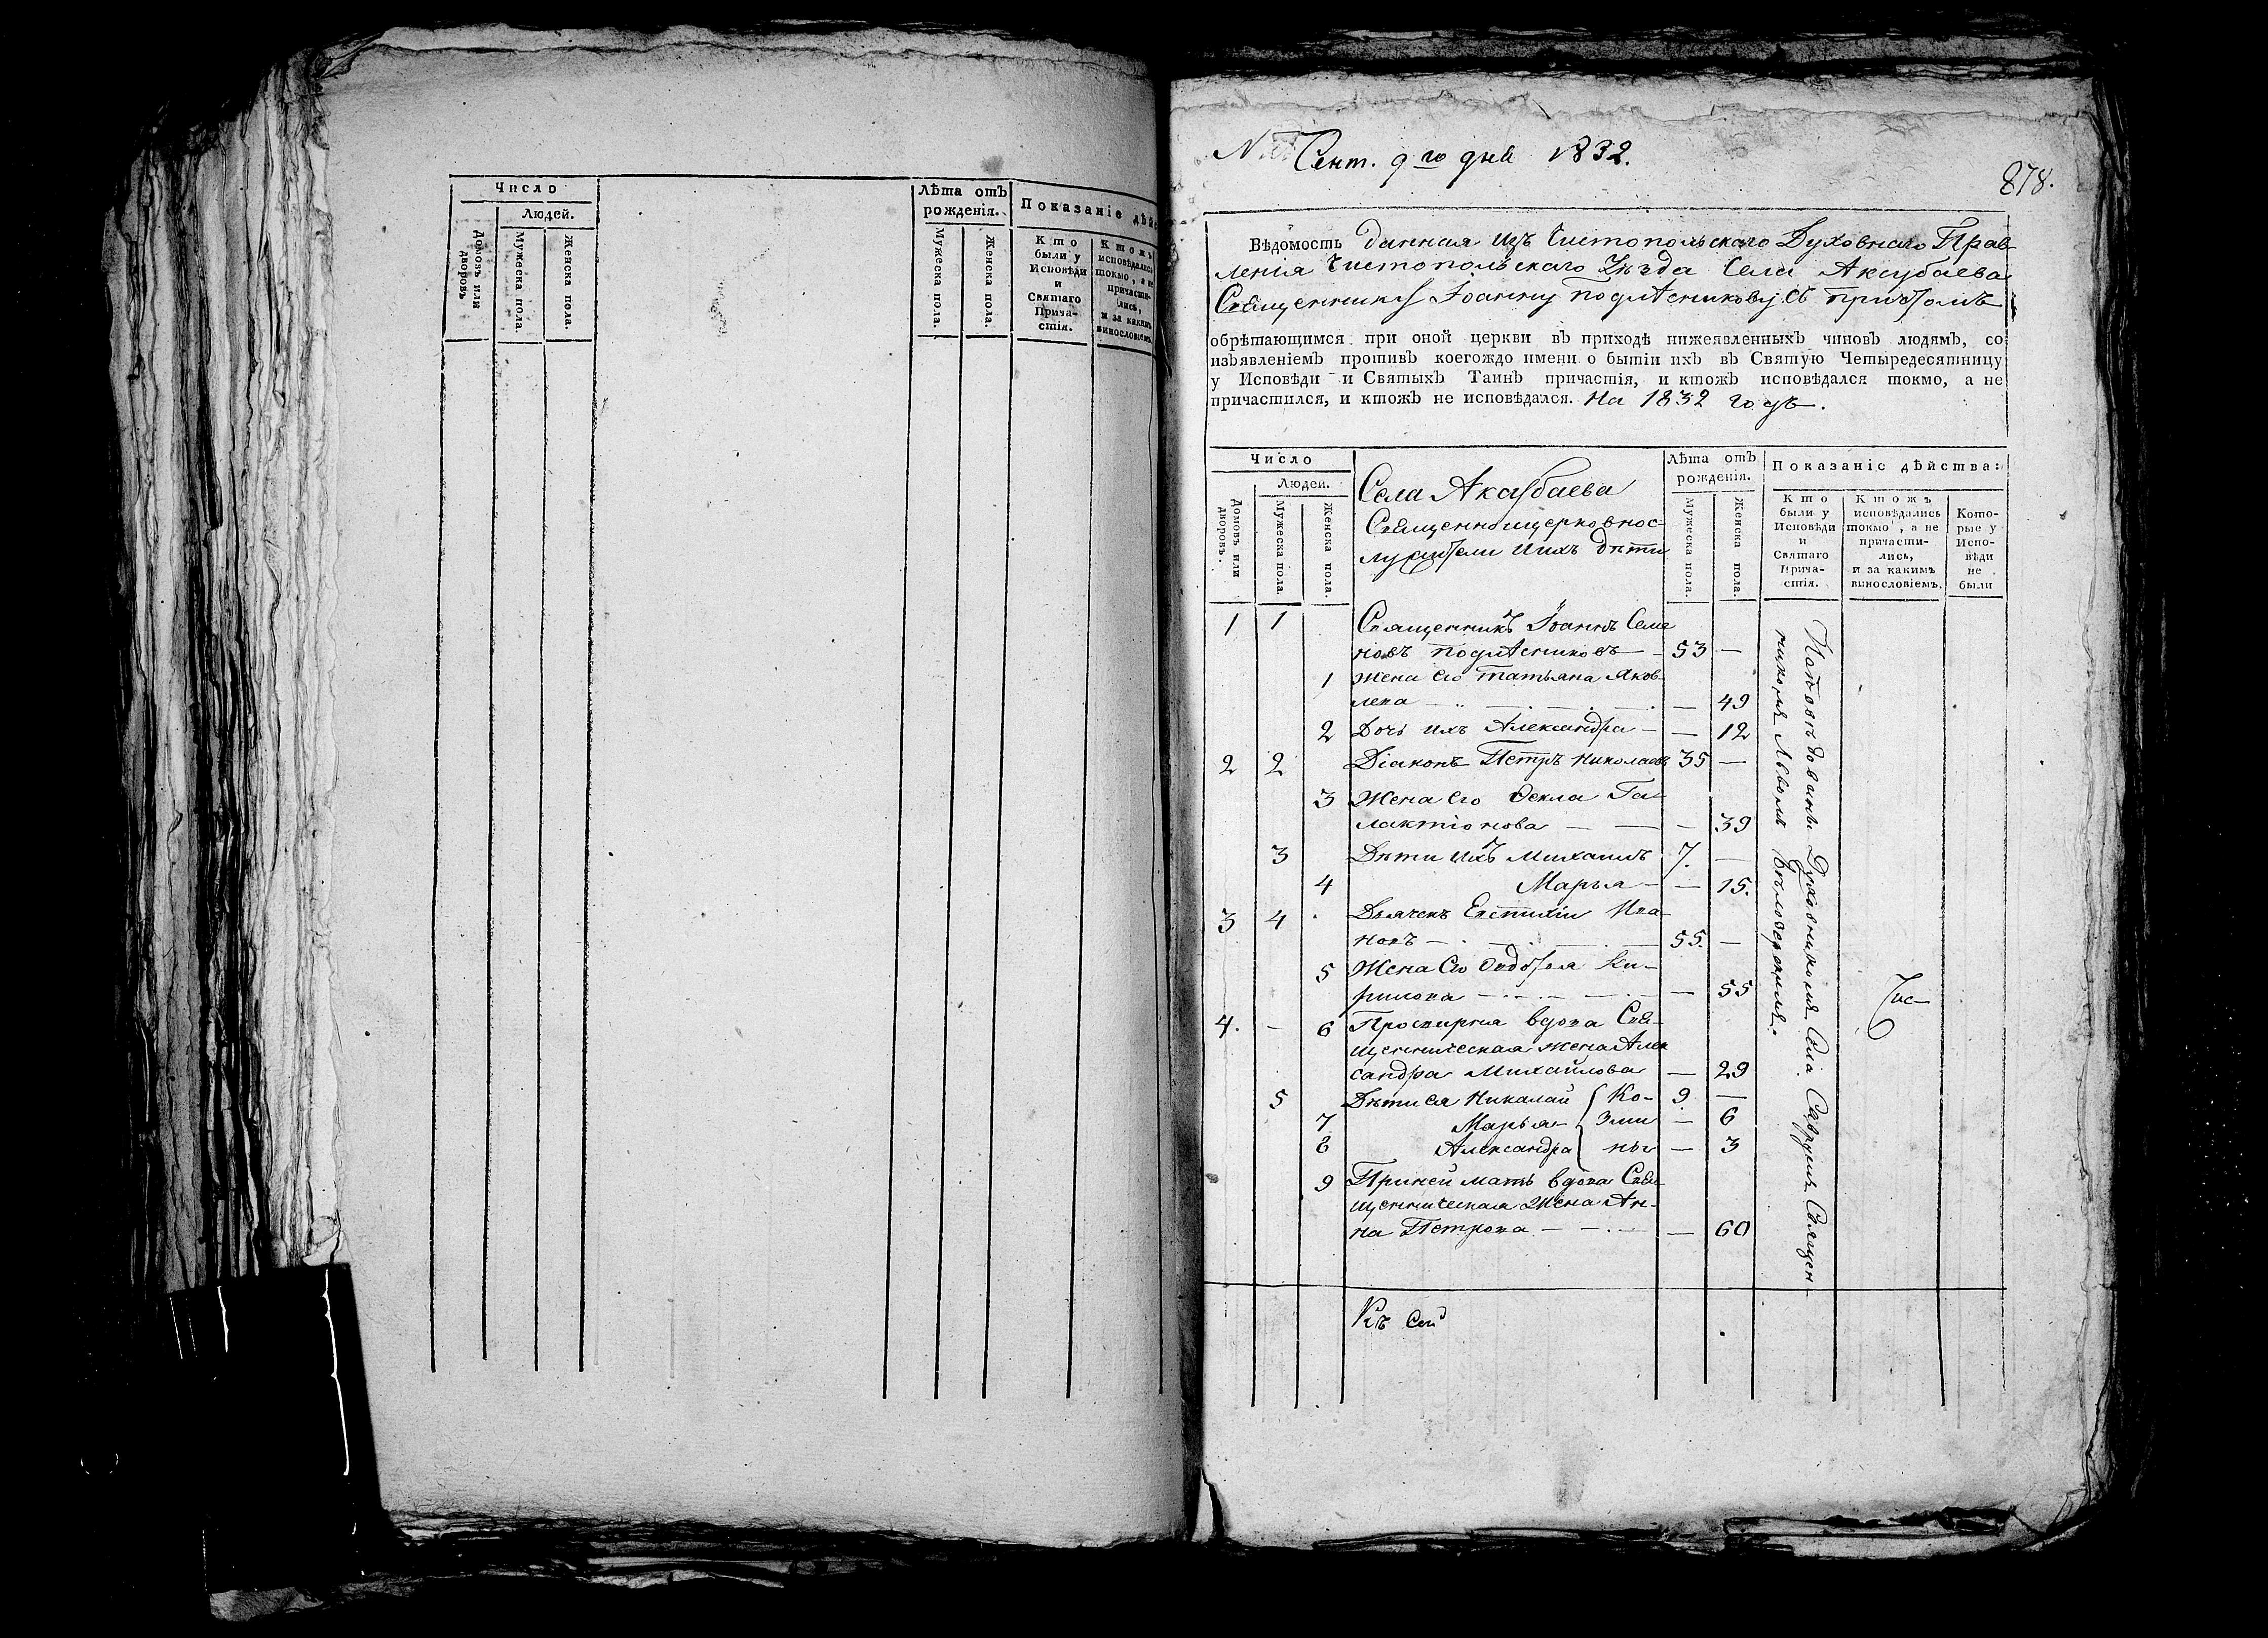 Число
Людей.
Домовъ или дворовъ
Мужеска пола.
Женска пола.
Лѣта отъ
рожденія.
Мужеска пола.
Женска пола.
Показаніе дѣй
Кто
были у
Исповѣди
и
Святаго
Прича-
стія.
Ктожъ
исповѣдались
токмо, а не
причасти-
лись,
и за какимъ
винословіемъ.
Сент. 9 го дня 1832.
878.
Вѣдомость данная изъ Чистопольскаго Духовнаго Прав-
ленія Чистопольскаго Уѣзда Села Аксубаева
Священнику Іоанну Подлѣсникову съ причтомъ
обрѣтающимся при оной церкви въ приходѣ нижеявленныхъ чиновъ людямъ, со
изъявленіемъ противъ коегождо имени о бытіи ихъ въ Святую Четыредесятницу
у Исповѣди и Святыхъ Таинъ причастія, и ктожъ исповѣдался токмо, а не
причастился, и ктожъ не исповѣдался. На 1832 годъ.
Число
Людей.
Домовъ или дворовъ.
Мужеска пола.
Женска пола.
Села Аксубаева
Священноцерковнос-
лужители и ихъ дѣти
Лѣта отъ
рожденія.
Мужеска пола.
Женска пола.
Показаніе дѣйства:
Кто
были у
Исповѣди
и
Святаго
Прича-
стія.
Ктожъ
исповѣдались
токмо, а не
причасти-
лись,
и за какимъ
винословіемъ.
Кото-
рые у
Испо-
вѣди
не
были
1 1 Священникъ Іоаннъ Семе
новъ Подлѣсниковъ — 53 —
1 Жена его Татьяна Яков-
лева — 49
2 Дочь ихъ Александра — — 12
2 2 Діаконъ Петръ Николаевъ 35 —
3 Жена его Ѳекла Га-
лактіонова — — — 39
3 Дѣти ихъ Михаилъ 7. —
4 Марья — — 15.
3 4 Дьячекъ Евстихій Ива-
новъ — 55. —
5 Жена его Ѳедосья Ки-
рилова — — 55
4. — 6 Просвирня вдова Свя-
щенническая жена Алек
сандра Михайлова — 29
5 Дѣти ея Николай { Ко- 9 —
7 Марья — зми — 6
8 Александра ны — 3
9 При ней мать вдова Свя-
щенническая Жена Ан-
на Петрова — — 60
Исповѣдованы Духовникомъ Села Саврушъ Священ-
никомъ Львомъ
Къ сей